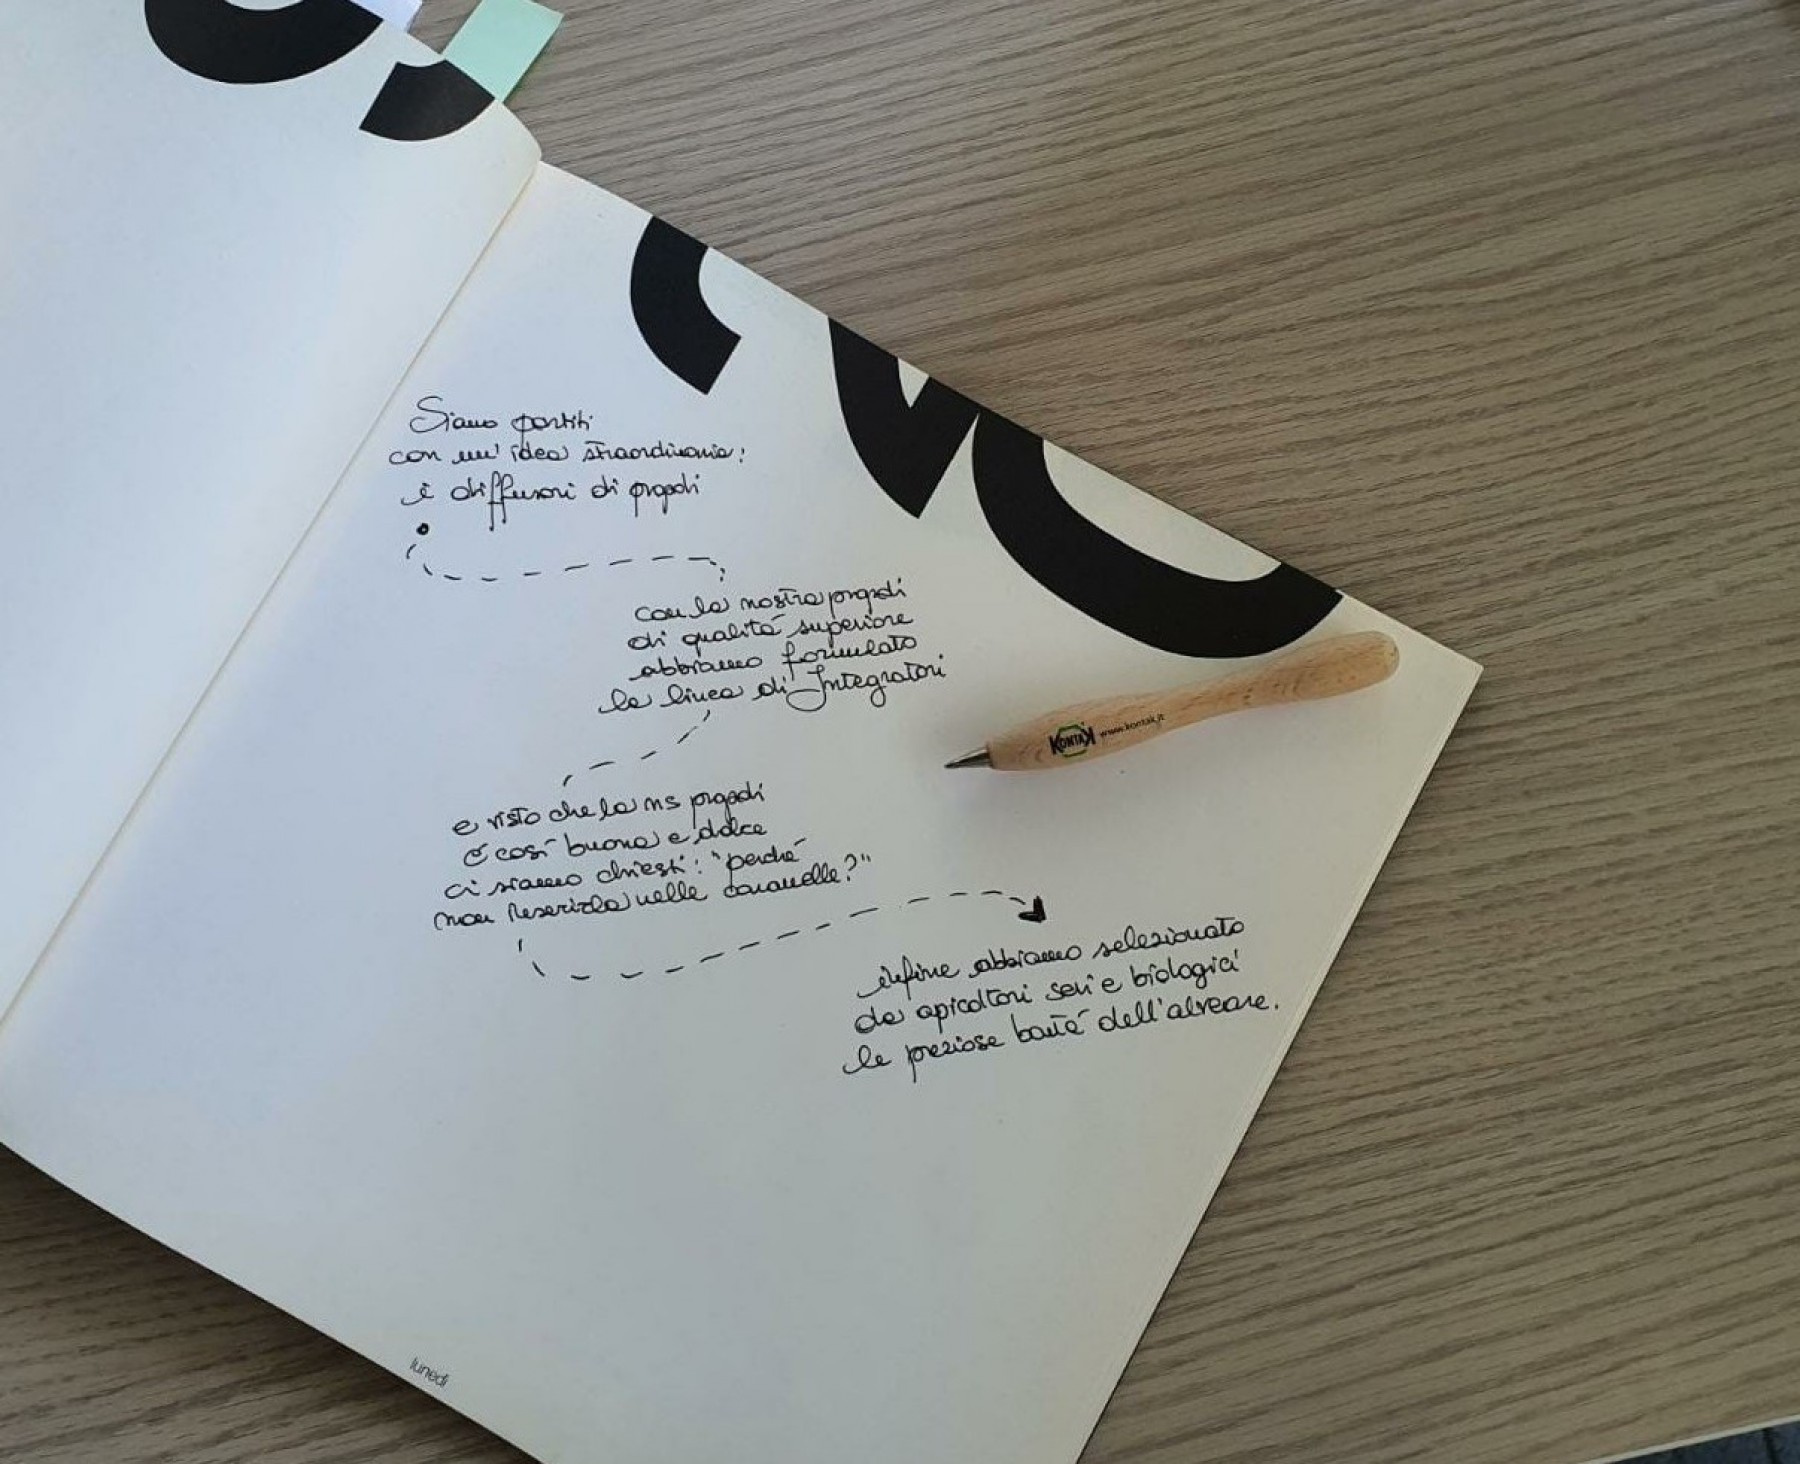 Siamo partiti
con un'idea straordinaria:
i diffusori di propoli
con la nostra propoli
di qualità superiore
abbiamo formulato
la linea di Integratori
e visto che la ns propoli
è così buona e dolce
ci siamo chiesti: "perché
non inserirla nelle caramelle?"
infine abbiamo selezionato
da apicoltori seri e biologici
le preziose bontà dell'alveare.
KONTAK www.kontak.it
lunedì